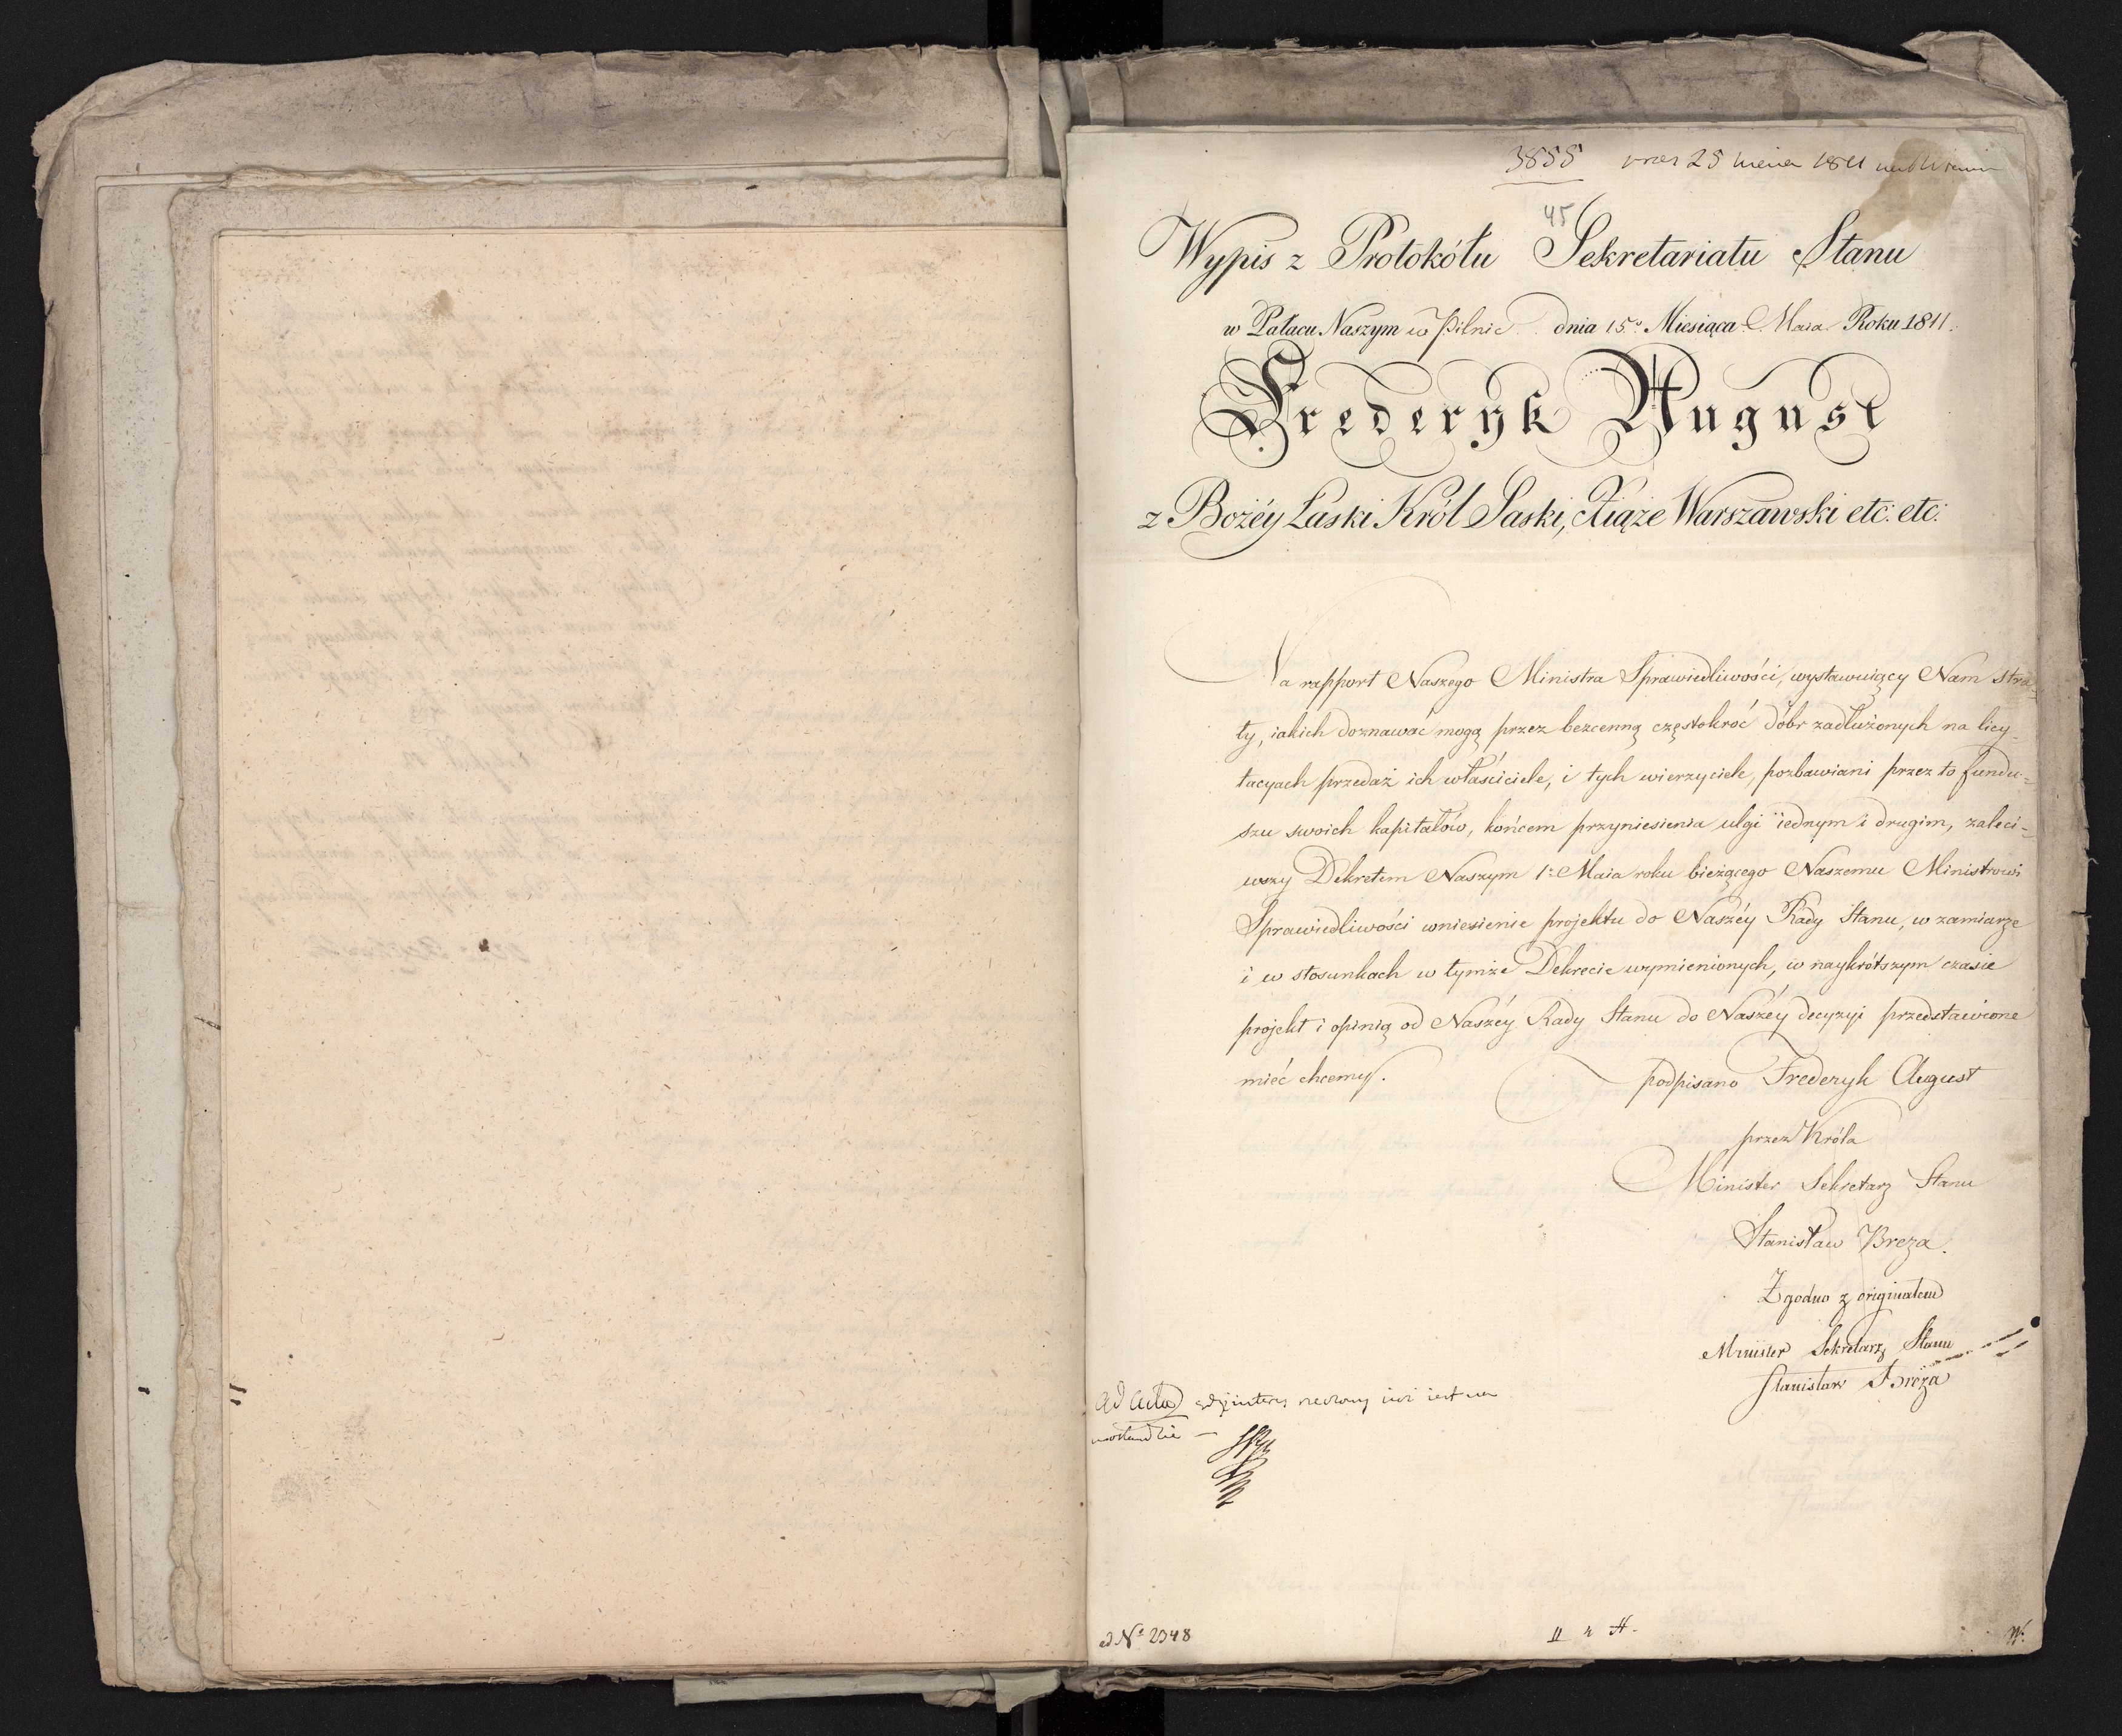 3855 25 1811
45
Wypis z Protokółu Sekretariatu Stanu
w Pałacu Naszym w Pilnic dnia 15º Miesiąca Maia Roku 1811.
Frederyk August
z Bożéy Łaski Król Saski, Xiąże Warszawski etc: etc:
Na rapport Naszego Ministra Sprawiedliwości, wystawuiący Nam stra-
ty, iakich doznawać mogą przez bezcenną częstokroć dóbr zadłużonych na licy-
tacyach przedaż ich właściciele, i tych wierzyciele, pozbawiani przez to fundu-
szu swoich kapitałów, końcem przyniesienia ulgi iednym i drugim, zaleci-
wszy Dekretem Naszym 1: Maia roku bieżącego Naszemu Ministrowi
Sprawiedliwości wniesienie projektu do Naszéy Rady Stanu, w zamiarze
i w stosunkach w tymże Dekrecie wymienionych, w naykrótszym czasie
projekt i opinią od Naszéy Rady Stanu do Naszéy decyzyi przedstawione
mieć chcemy.
podpisano Frederyk August
przez Króla
Minister Sekretarz Stanu
Stanisław Breza.
Zgodno z originałem
Minister Sekretarz Stanu
Stanisław Breza
ad acta gdy iuż iest na
ad Nº 2348
W.